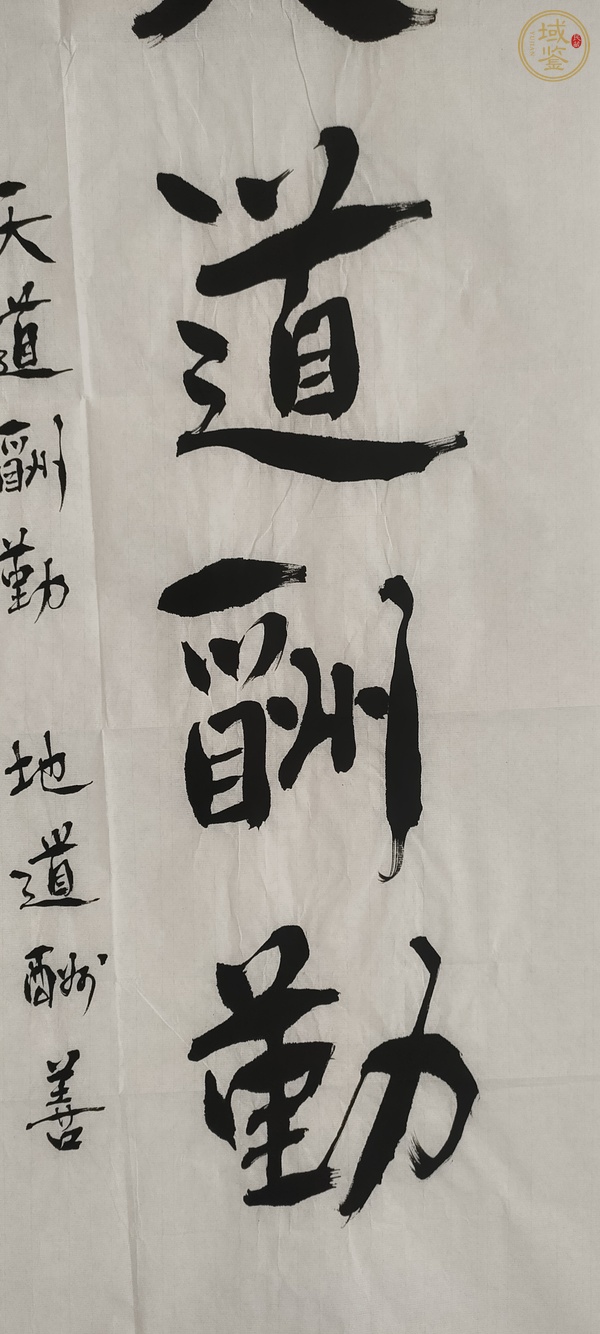 天道酬勤
天道酬勤
地道酬善
域鉴
YUJIAN